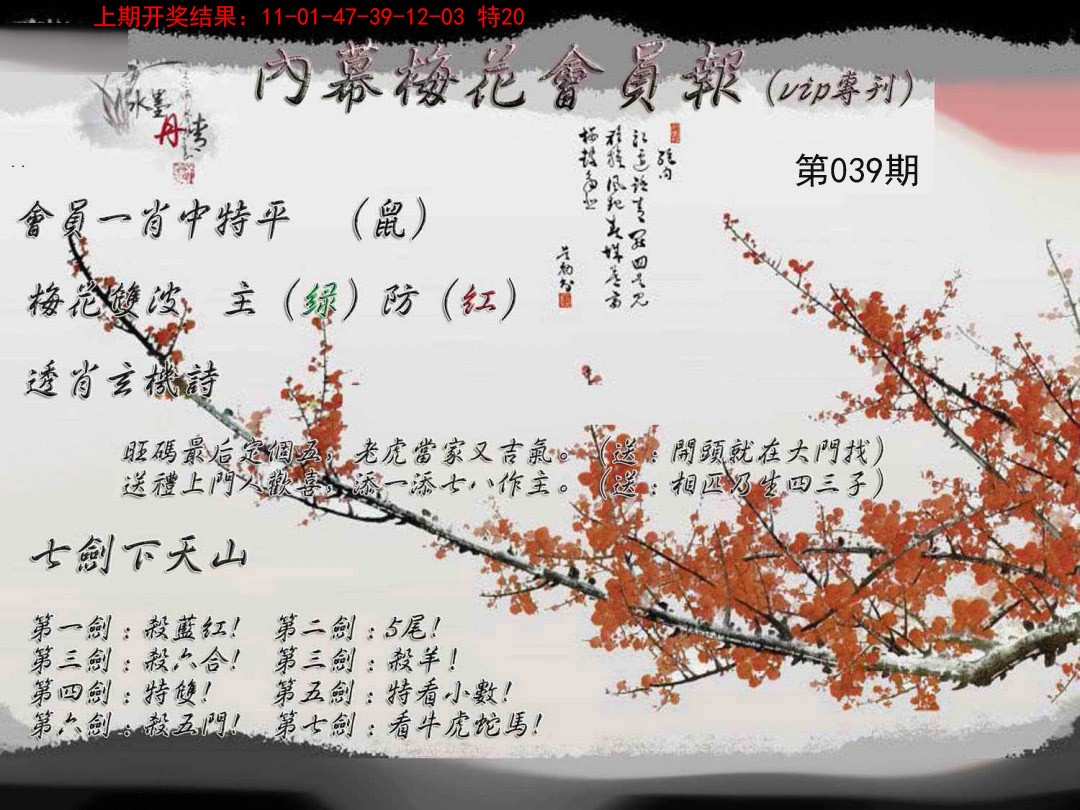 上期开奖结果：11-01-47-39-12-03 特20
內幕梅花會員報（vip專刊）
水墨
丹青
第039期
會員一肖中特平 （鼠）
梅花雙波 主（绿）防（红）
透肖玄機詩
旺碼最后定個五，老虎當家又吉氣。（送：開頭就在大門找）
送禮上門人歡喜，添一添七八作主。（送：相匹乃生四三子）
七劍下天山
第一劍：殺藍红！ 第二劍：5尾！
第三劍：殺六合！ 第三劍：殺羊！
第四劍：特雙！ 第五劍：特看小數！
第六劍：殺五門！ 第七劍：看牛虎蛇馬！